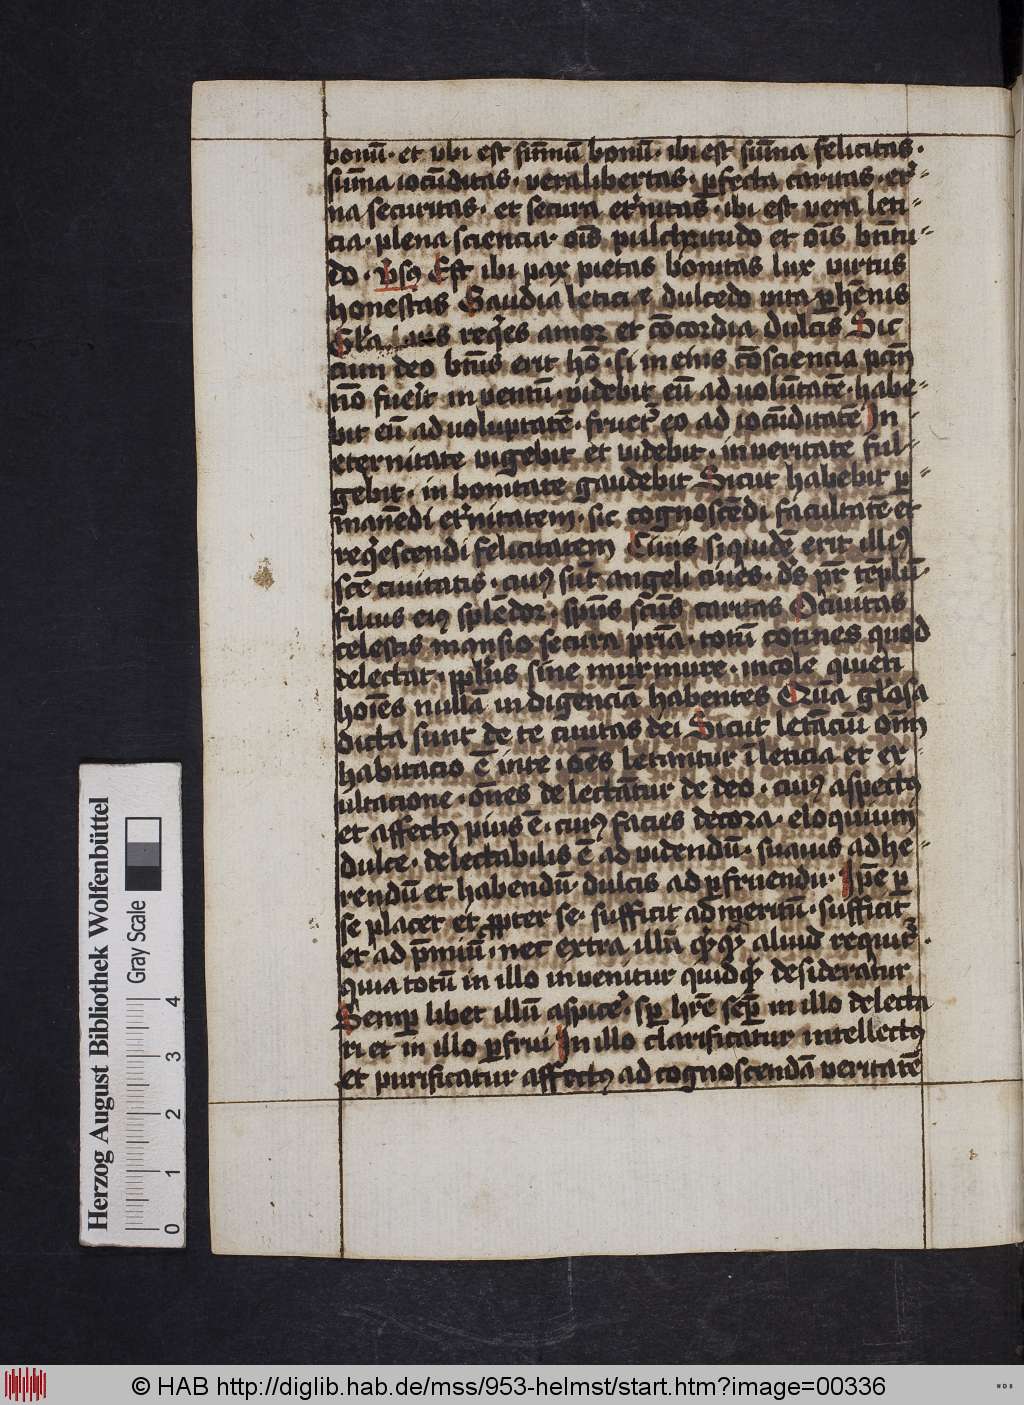 bonū · et vbi est sūmū bonū · ibi est sūma felicitas ·
sūma iocūditas · vera libertas · ꝑfecta caritas · et̉-
na securitas · et secura et̉nitas · ibi est vera leti-
cia · plena sciencia · oīs pulchritudo et oīs br̄itu-
do · vsꝫ Est ibi pax pietas bonitas lux virtus
honestas Gaudia leticie dulcedo vita ꝑhēnis
Gl̄ia laus req̇es amor et cōcordia dulcis Sic
cum deo br̄us erit hō · si in eius cōsciencia pccm̄
nō fuerit inuentū · videbit eū ad uolūtatē · habe-
bit eū ad uoluptatē · fruet̉ eo ad iocūditatē In
eternitate vigebit et videbit · in veritate ful-
gebit · in bonitate gaudebit Sicut habebit ꝑ-
manēdi et̉nitatem · sic cognoscēdi facultatē et
req̇escendi felicitatem Ciuis siquidē erit illiꝰ
scē ciuitatis · cuiꝰ sūt angeli ciues · ds̄ pr̄ tēplū ·
filius eiꝰ splēdor · spūs scūs caritas O ciuitas
celestis mansio secura pr̄ia · totū cōtines quod
delectat · ppl̄us sine murmure · incole quieti
hoīes nullā indigenciā habentes Quā gl̄iosa
dicta sunt de te ciuitas dei Sicut letāciū oīm
habitacio ē in te · oēs letantur ī leticia et ex-
ultacione · oēs delectātur de deo · cuiꝰ aspectꝰ
et affectꝰ pius ē · cuiꝰ facies decora · eloquium
dulce · delectabilis ē ad videndū · suauis ad he-
rendū et habendū · dulcis ad ꝑfruendū · Ipē ꝑ
se placet et ꝓpter se · sufficit ad meritū · sufficit
et ad p̄miū · nec extra illū aliud requirit̉ ·
quia totū in illo inuenitur quidꝗ desideratur
Semꝑ libet illū aspicẻ · sꝑ hr̄e seꝑ in illo delecta
ri et in illo ꝑfrui In illo clarificatur intellectꝰ
et purificatur affectꝰ ad cognoscendā veritatē
Herzog August Bibliothek Wolfenbüttel
Gray Scale
0 1 2 3 4
© HAB http://diglib.hab.de/mss/953-helmst/start.htm?image=00336